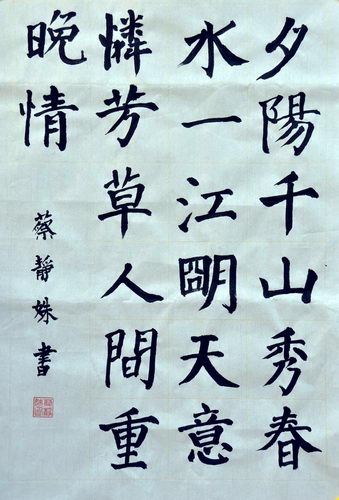 夕陽千山秀春
水一江明天意
憐芳草人間重
晚情
蔡靜姝書